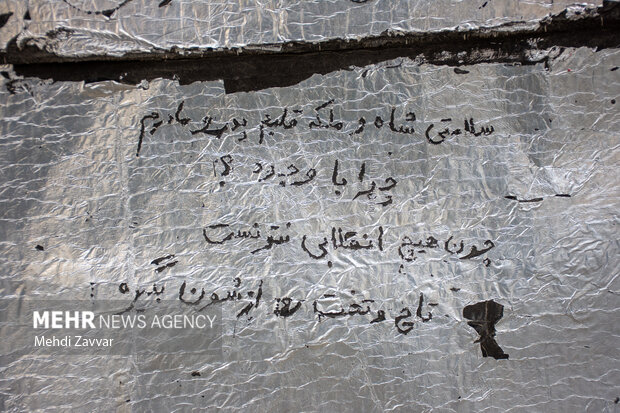 سلامتی شاه و ملکه قلبم پدرو مادرم
چرا با وجود ؟!
چون هیچ انقلابی نتونست
تاج و تخت رو ازشون بگیره
MEHR NEWS AGENCY
Mehdi Zavvar